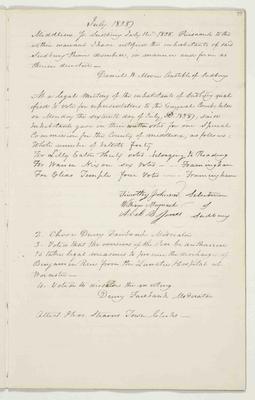 July 1838)
Middlesex Ss. Sudbury July 16th 1838. Pursuant to the
within warrant I have notified the inhabitants of said
Sudbury therein described, in manner and form as
therein directed —
Daniel H. Moore Constable of Sudbury
At a legal Meeting of the inhabitants of Sudbury qual
ified to vote for representatives to the General Court holden
on Monday the sixteenth day of July, 1838), said
inhabitants gave in their votes for one special
Commissioner for the County of Middlesex, as follows:
Whole number of ballots forty
For Lilly Eaton thirty votes belonging to Reading
For Warren Nixon six votes — Framingham
For Elias Temple four Votes — Framingham
Timothy Johnson Selectmen
William Maynard of
Abel B. Jones Sudbury
2. Chose Drury Fairbank Moderator
3. Voted that the overseers of the Poor be authorised
to take legal measures to procure the discharge of
Benjamin Rice from the Lunatic Hospital at
Worcester —
4. Voted to dissolve the meeting
Drury Fairbank Moderator
Attest Town Clerk —